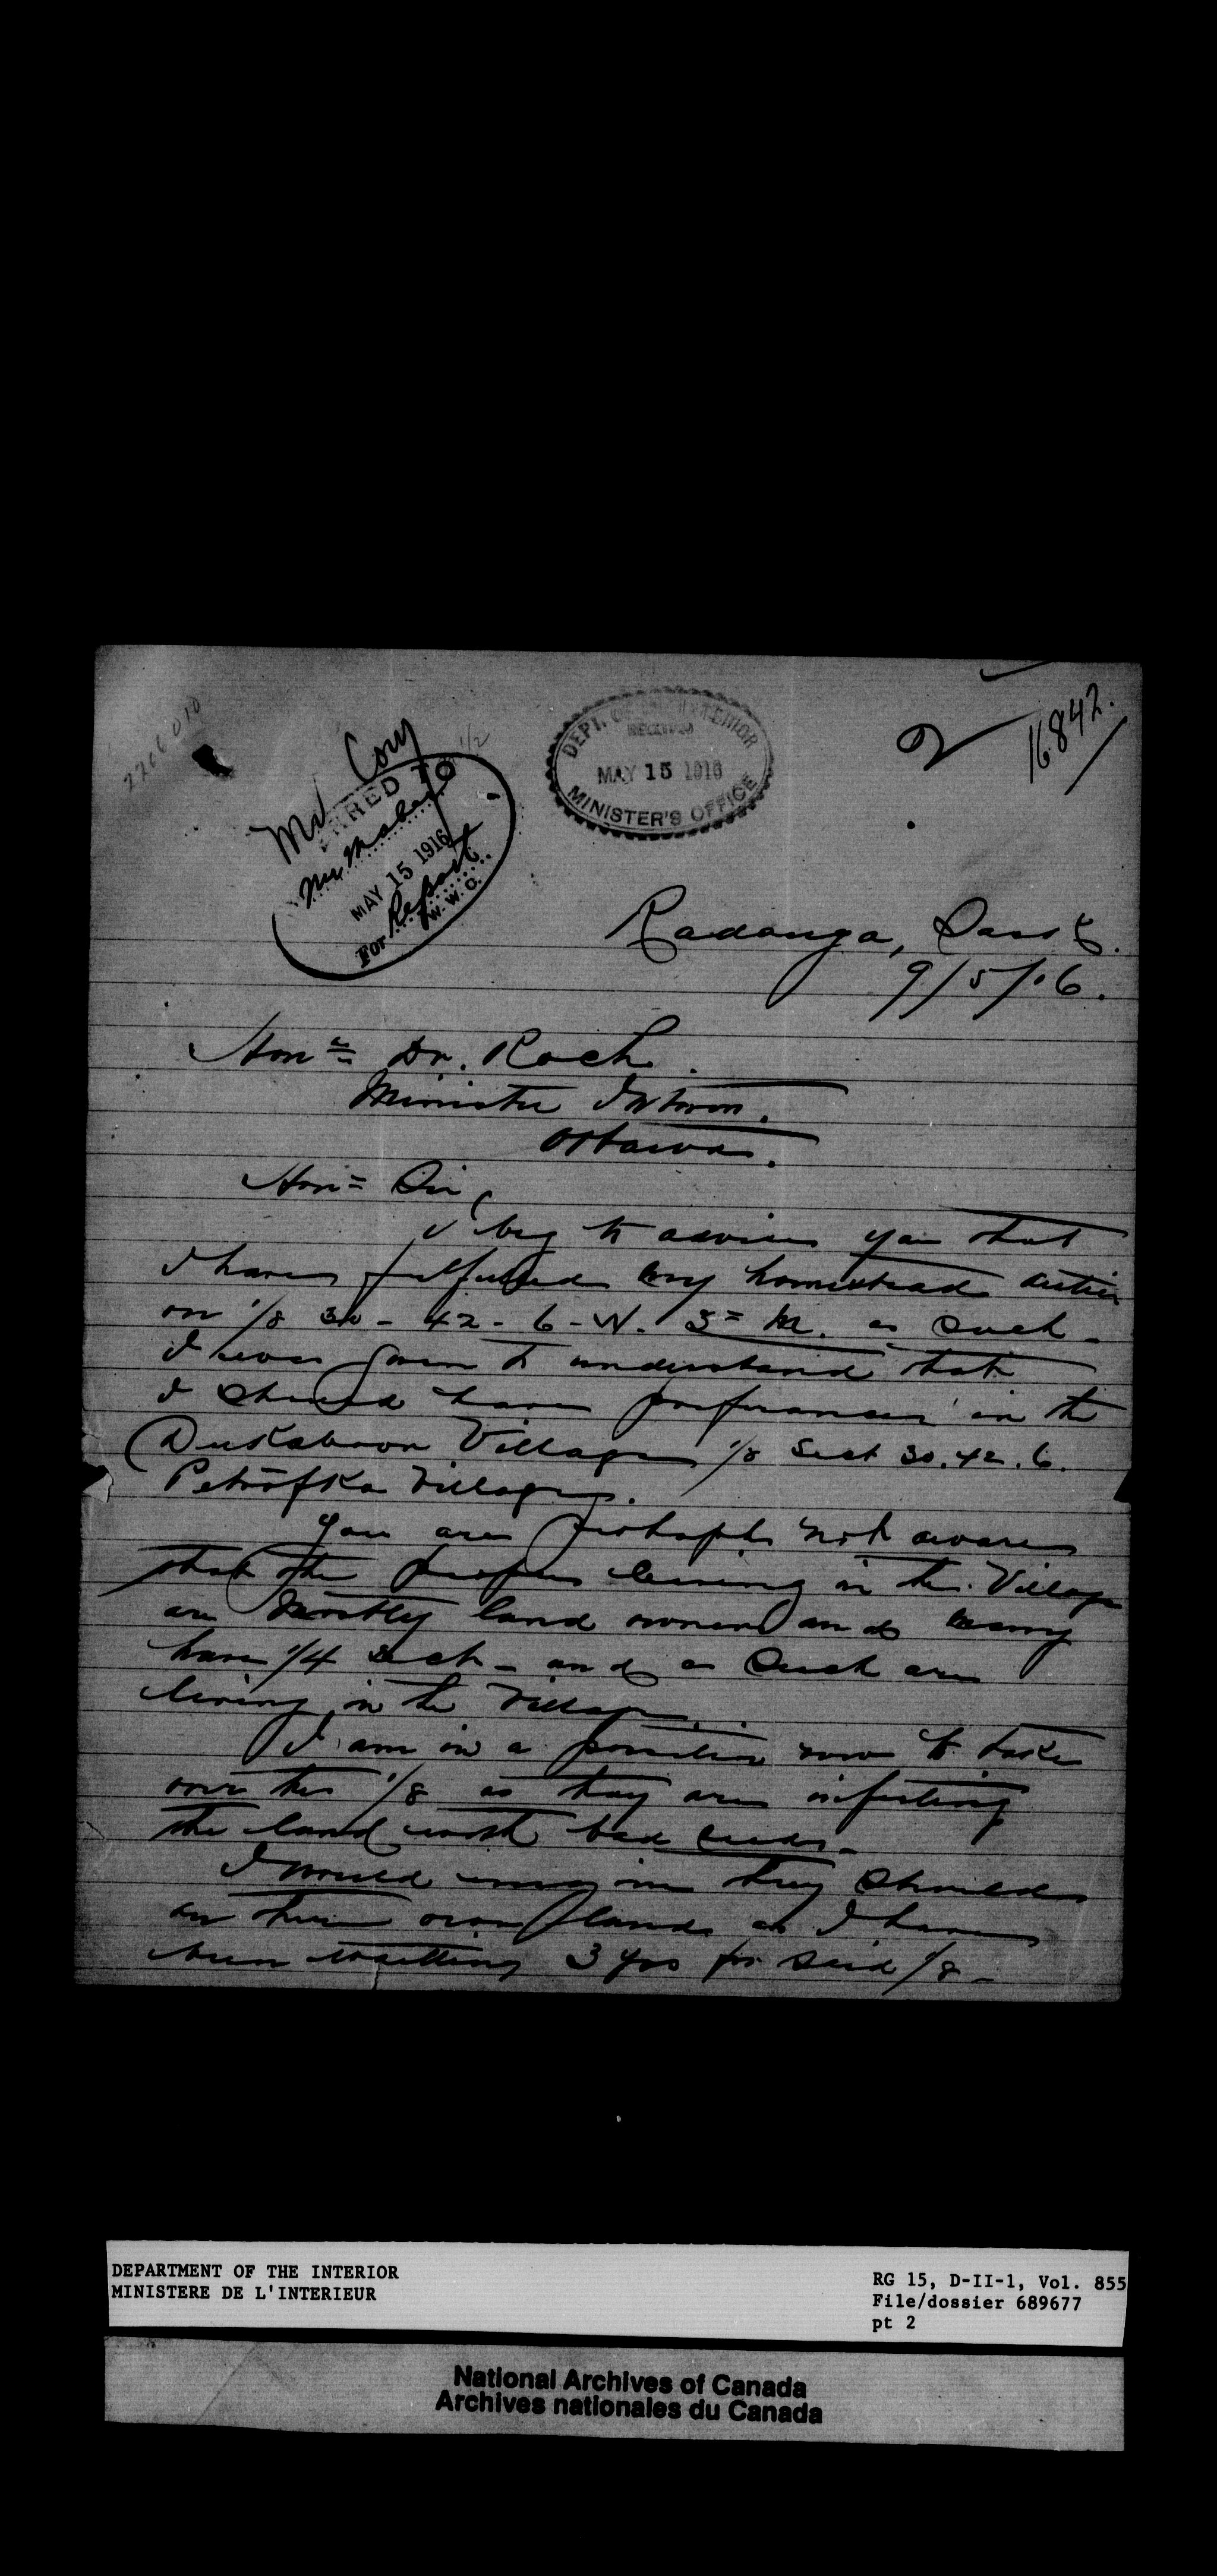 16842.
2
Mr Cory
REFERRED TO
Mr
MAY 15 1916
For Report
W. W. C.
DEPT. OF THE INTERIOR
RECEIVED
MAY 15 1916
MINISTER'S OFFICE
Radouga, Sask.
9/5/16.
Hon = Dr. Roch.
Minister Interior.
Ottawa.
Hon = Sir,
I beg to advise you that
I have fulfilled my homestead duties
on 1/8 30 - 42 - 6 - W. 3 = M. as such -
I was given to understand that
I should have preference in the
Dukaboor Village 1/8 Sect 30. 42. 6.
Petrofka Village.
You are probaply not aware
that the people living in the Village
are mostly land owners and many
have 1/4 Sect - and as such are
living in the Village.
I am in a position now to take
over the 1/8 as they are infesting
the land with bad weeds -
I would imagine they should
on their own lands as I have
been waitting 3 yrs for said 1/8 -
DEPARTMENT OF THE INTERIOR
MINISTERE DE L'INTERIEUR
RG 15, D-II-1, Vol. 855
File/dossier 689677
pt 2
National Archives of Canada
Archives nationales du Canada